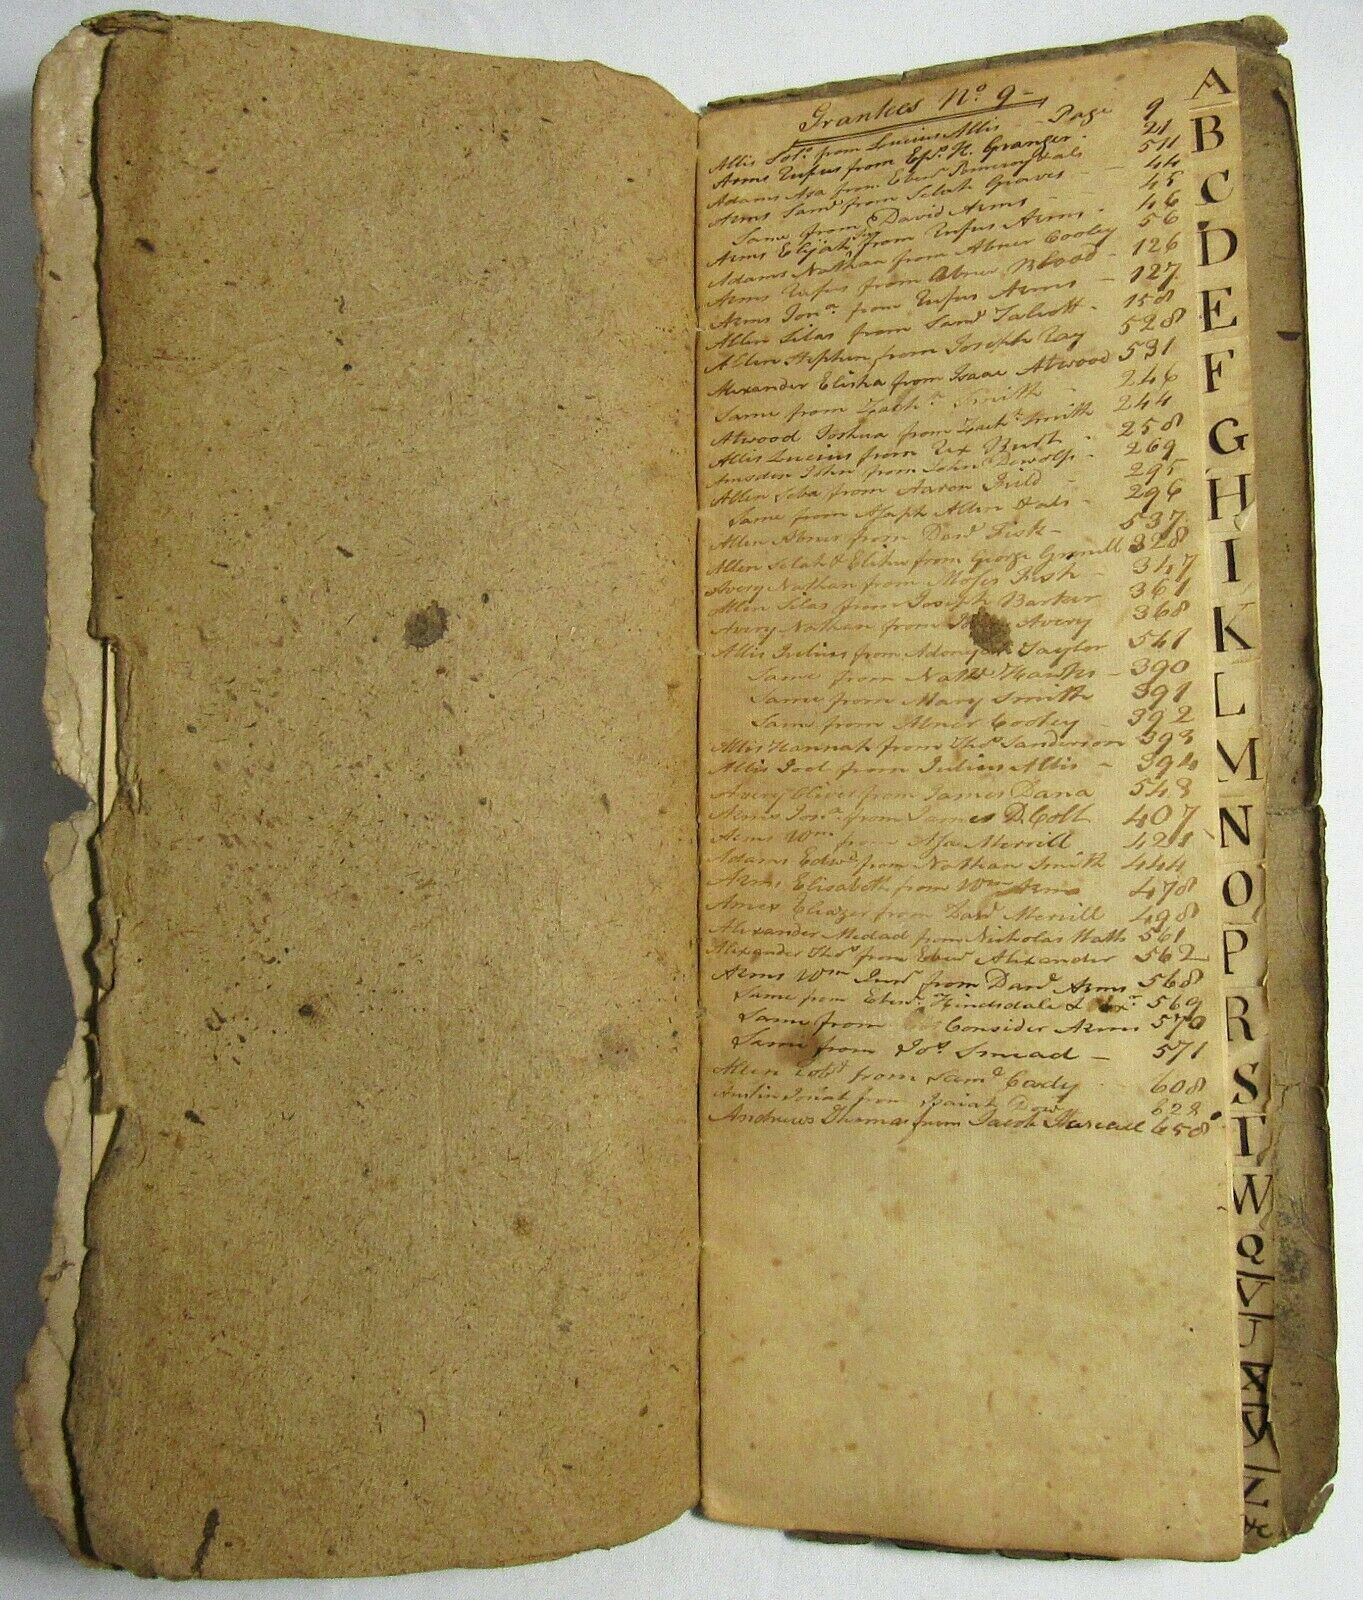 Grantees No. 9
Allis Solo. from Lucius Allis - Page 9
Arms Rufus from Eps. H. Granger. 21
Adams Asa from Ebenr. Pomroy & als 511
Arms Saml. from Selah Graves - 44
Same from David Arms - 45
Arms Elijah from Rufus Arms - 46
Adams Nathan from Abner Cooley 56
Arms Rufus from Abner Blood - 126
Arms Jona. from Rufus Arms - 127
Allen Silas from Saml. Talcott - 158
Allen Stephen from Joseph Ray 528
Alexander Elisha from Isaac Atwood 531
Same from Zachr. Smith - 246
Atwood Joshua from Zachr. Smith 244
Allis Lucius from Ex Hurt - 258
Amsden John from John Dewolf - 269
Allen Seba from Aaron Field - 295
Same from Asaph Allen & als - 296
Allen Abner from Danl. Fisk - 537
Allen Selah & Elihu from George Grenell 328
Avery Nathan from Moses Fish - 347
Allen Silas from Joseph Barker 361
Avery Nathan from Avery 368
Allis Julius from Adonijah Taylor 541
Same from Nathl. Hawks - 390
Same from Mary Smith 391
Same from Abner Cooley - 392
Allis Hannah from Thos. Sanderson 393
Allis Joel from Julius Allis - 394
Avery Oliver from James Dana 548
Arms Jona. from James D. Colt 407
Arms Wm from Asa Merrill 421
Adams Edwd. from Nathan Smith 444
Arms Elisabeth from Wm Arms 478
Amex Eliazer from Danl. Merrill 498
Alexander Medad from Nicholas 561
Alexander Thos. from Ebenr Alexander 562
Arms Wm Junr from Danl Arms 568
Same from Ebenr. Hinsdale & 569
Same from Consider Arms 570
Same from Jos. Smead - 571
Allen from Saml Cady 608
Austin Josiah from Isaiah Dow 628
Andrews Thomas from Jacob 658
A
B
C
D
E
F
G
H
I
K
L
M
N
O
P
R
S
T
W
Q
V
J
X
Y
Z
&c